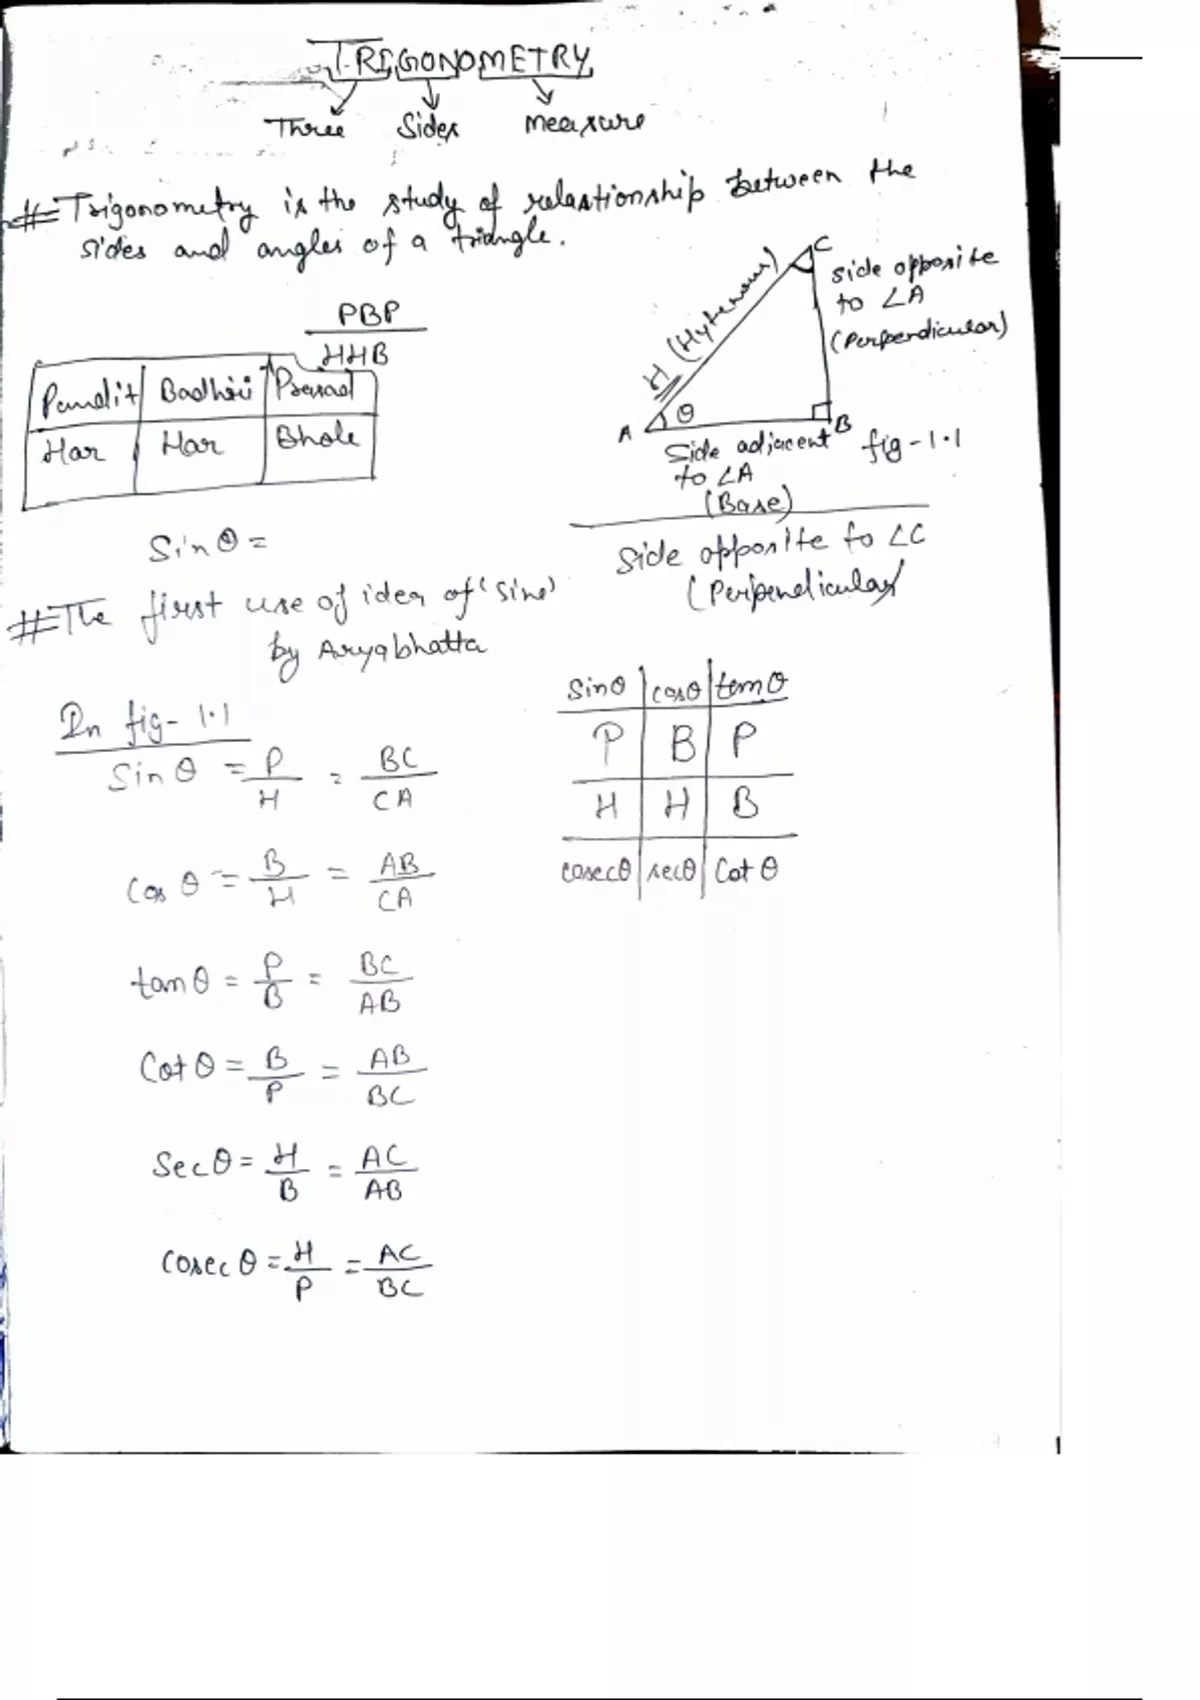 TRIGONOMETRY
Three Sides measure
# Trigonometry is the study of relastionship between the
sides and angles of a triangle.
PBP
HHB
Pandit Badhri Prasad
Har Har Bhole
C
side opposite
to ∠A
(Perpendicular)
H (Hytenous)
A θ B
Side adjacent
to ∠A
(Base)
fig-1.1
Sinθ =
Side opposite to ∠C
(Perpendicular)
# The first use of idea of 'sine'
by Aryabhatta
In fig-1.1
Sin θ = P/H = BC/CA
Cos θ = B/H = AB/CA
tan θ = P/B = BC/AB
Cot θ = B/P = AB/BC
Sec θ = H/B = AC/AB
Cosec θ = H/P = AC/BC
Sinθ cosθ tanθ
P B P
H H B
cosecθ secθ Cot θ
1